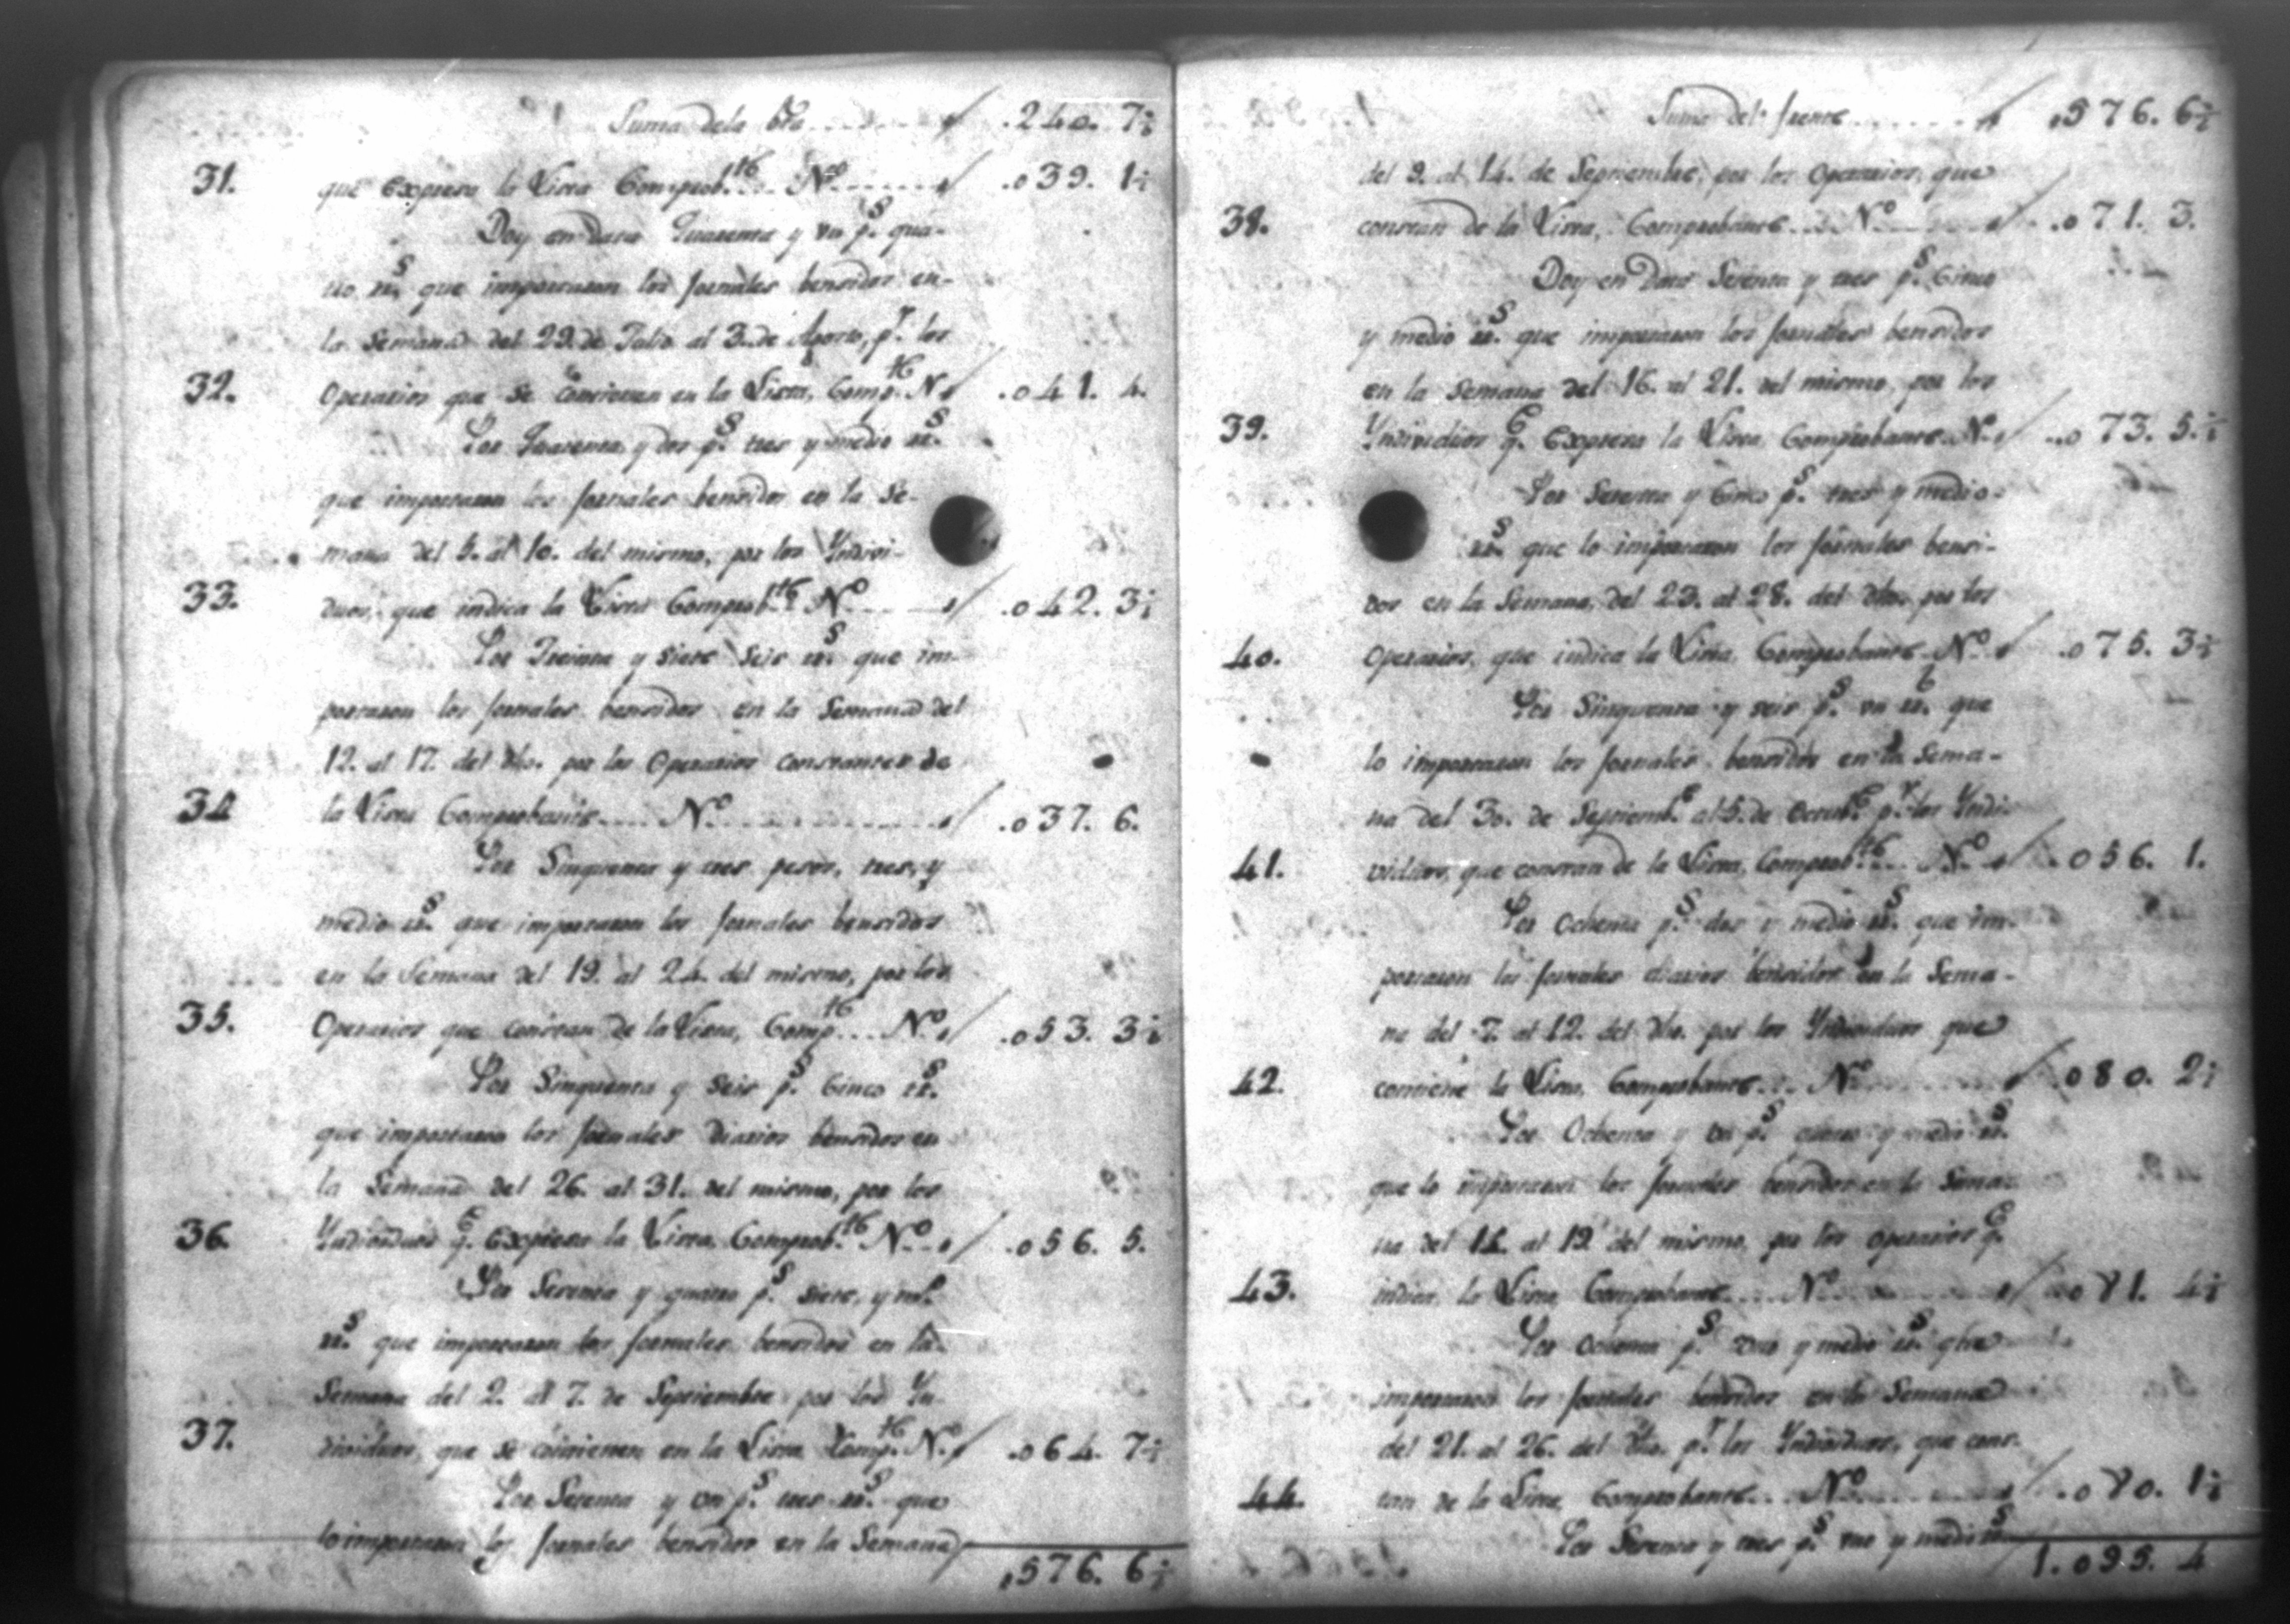 Suma dela bta ........ 240. 7½
31. que expresa la Lista Comprob.te N.o ...... 039. 1½
Doy en Data Quarenta y un p.s qua-
tro rr.s que importaron los jornales bensidos en-
la Semana del 29. de Julio al 3. de Agosto, p.r los
32. Operarios que se contienen en la Lista, Comp.te N.o 041. 4.
Por Quarenta, y dos p.s tres y medio rr.s
que importaron los jornales bensidos en la Se-
mana del 5. al 10. del mismo, por los Yndivi-
33. duos, que indica la Lista Comprob.te N.o ..... 042. 3½
Por Treinta y siete seis rr.s que im-
portaron los jornales bensidos en la Semana del
12. al 17. del dho. por los Operarios constantes de
34 la Lista Comprobante.... N.o ............ 037. 6.
Por Sinquenta y tres pesos, tres, y
medio rr.s que importaron los jornales bensidos
en la Semana del 19. al 24. del mismo, por los
35. Operarios que constan de la Lista, Comp.te... N.o 053. 3½
Por Sinquenta y seis p.s Cinco rr.s
que importaron los jornales Diarios bensidos en
la Semana del 26. al 31. del mismo, por los
36. Yndividuos q.e Expresa la Lista Comprob.te N.o 056. 5.
Por Sesenta y quatro p.s siete, y m.o
rr.s que importaron los jornales bensidos en la
Semana del 2. al 7. de Septiembre por los Yn-
37. dividuos, que se contienen en la Lista Comp.te N.o 064. 7½
Por Setenta y un p.s tres rr.s que
lo importaron los jornales bensidos en la Semana
576. 6½
Suma del frente ........ 576. 6½
del 9. al 14. de Septiembre, por los Operarios, que
38. constan de la Lista, Comprobante... N.o ..... 071. 3.
Doy en Data Setenta y tres p.s Cinco
y medio rr.s que importaron los jornales bensidos
en la Semana del 16. al 21. del mismo, por los
39. Yndividuos q.e Expresa la Lista Comprobante N.o 073. 5½
Por Setenta y Cinco p.s tres y medio
rr.s que lo importaron los jornales bensi-
dos en la Semana, del 23. al 28. del dho. por los
40. Operarios, que indica la Lista, Comprobante N.o 075. 3½
Por Sinquenta y seis p.s un rr.l que
lo importaron los jornales bensidos en la Sema-
na del 30. de Septiemb.e al 5. de Octub.e p.r los Yndi-
41. viduos, que constan de la Lista, Comprob.te.... N.o 056. 1.
Por Ochenta p.s dos y medio rr.s que im-
portaron los jornales diarios bensidos en la Sema-
na del 7. al 12. del dho. por los Yndividuos que
42. contiene la Lista, Comprobante.... N.o ...... 080. 2½
Por Ochenta y un p.s quatro y medio rr.s
que lo importaron los jornales bensidos en la Sema-
na del 14. al 19 del mismo, por los Operarios q.e
43. indica, la Lista Comprobante.... N.o ...... 081. 4½
Por Ochenta p.s uno y medio rr.s que
importaron los jornales bensidos en la Semana
del 21. al 26. del dho. p.r los Yndividuos, que cons-
44. tan de la Lista, Comprobante... N.o ...... 080. 1½
Por Setenta y tres p.s uno y medio rr.s
1.095. 4